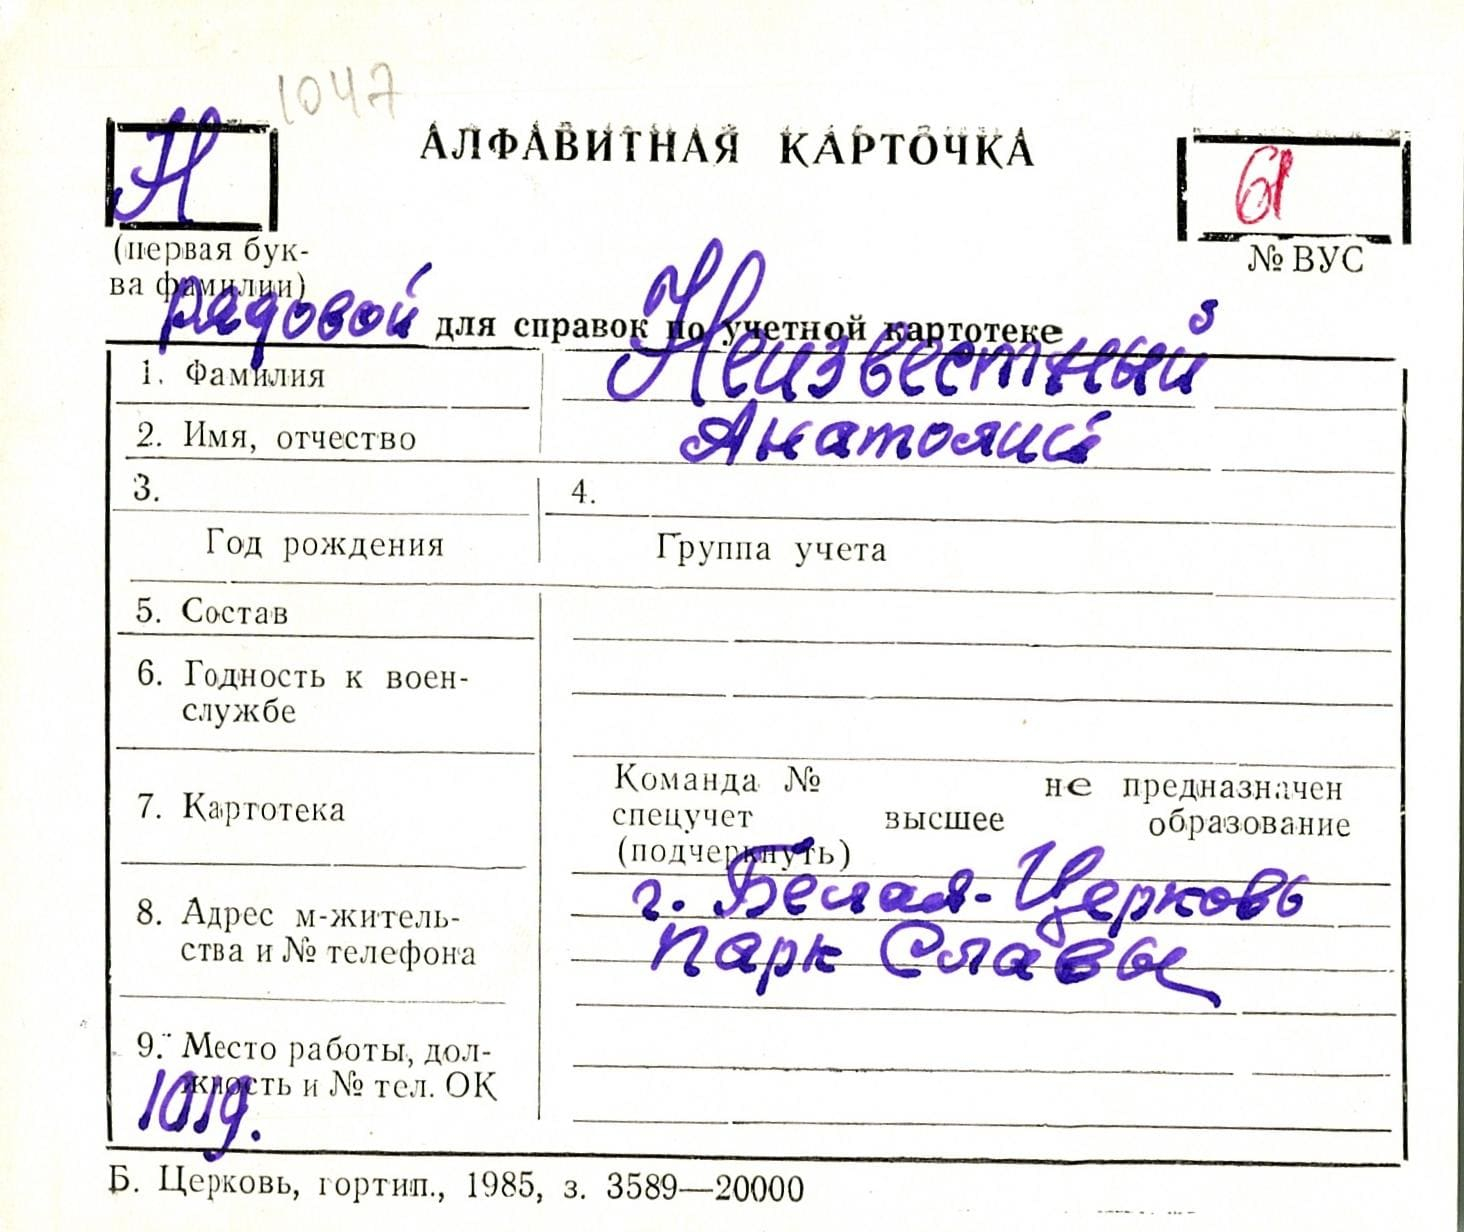 1047
Н
АЛФАВИТНАЯ КАРТОЧКА
61
(первая бук-
ва фамилии)
№ ВУС
рядовой для справок по учетной картотеке
1. Фамилия Неизвестный
2. Имя, отчество Анатолий
3. 4.
Год рождения Группа учета
5. Состав
6. Годность к воен-
службе
7. Картотека
Команда № не предназначен
спецучет высшее образование
(подчеркнуть)
8. Адрес м-житель-
ства и № телефона
г. Белая-Церковь
парк Славы
9. Место работы, дол-
жность и № тел. ОК
1019.
Б. Церковь, гортип., 1985, з. 3589—20000